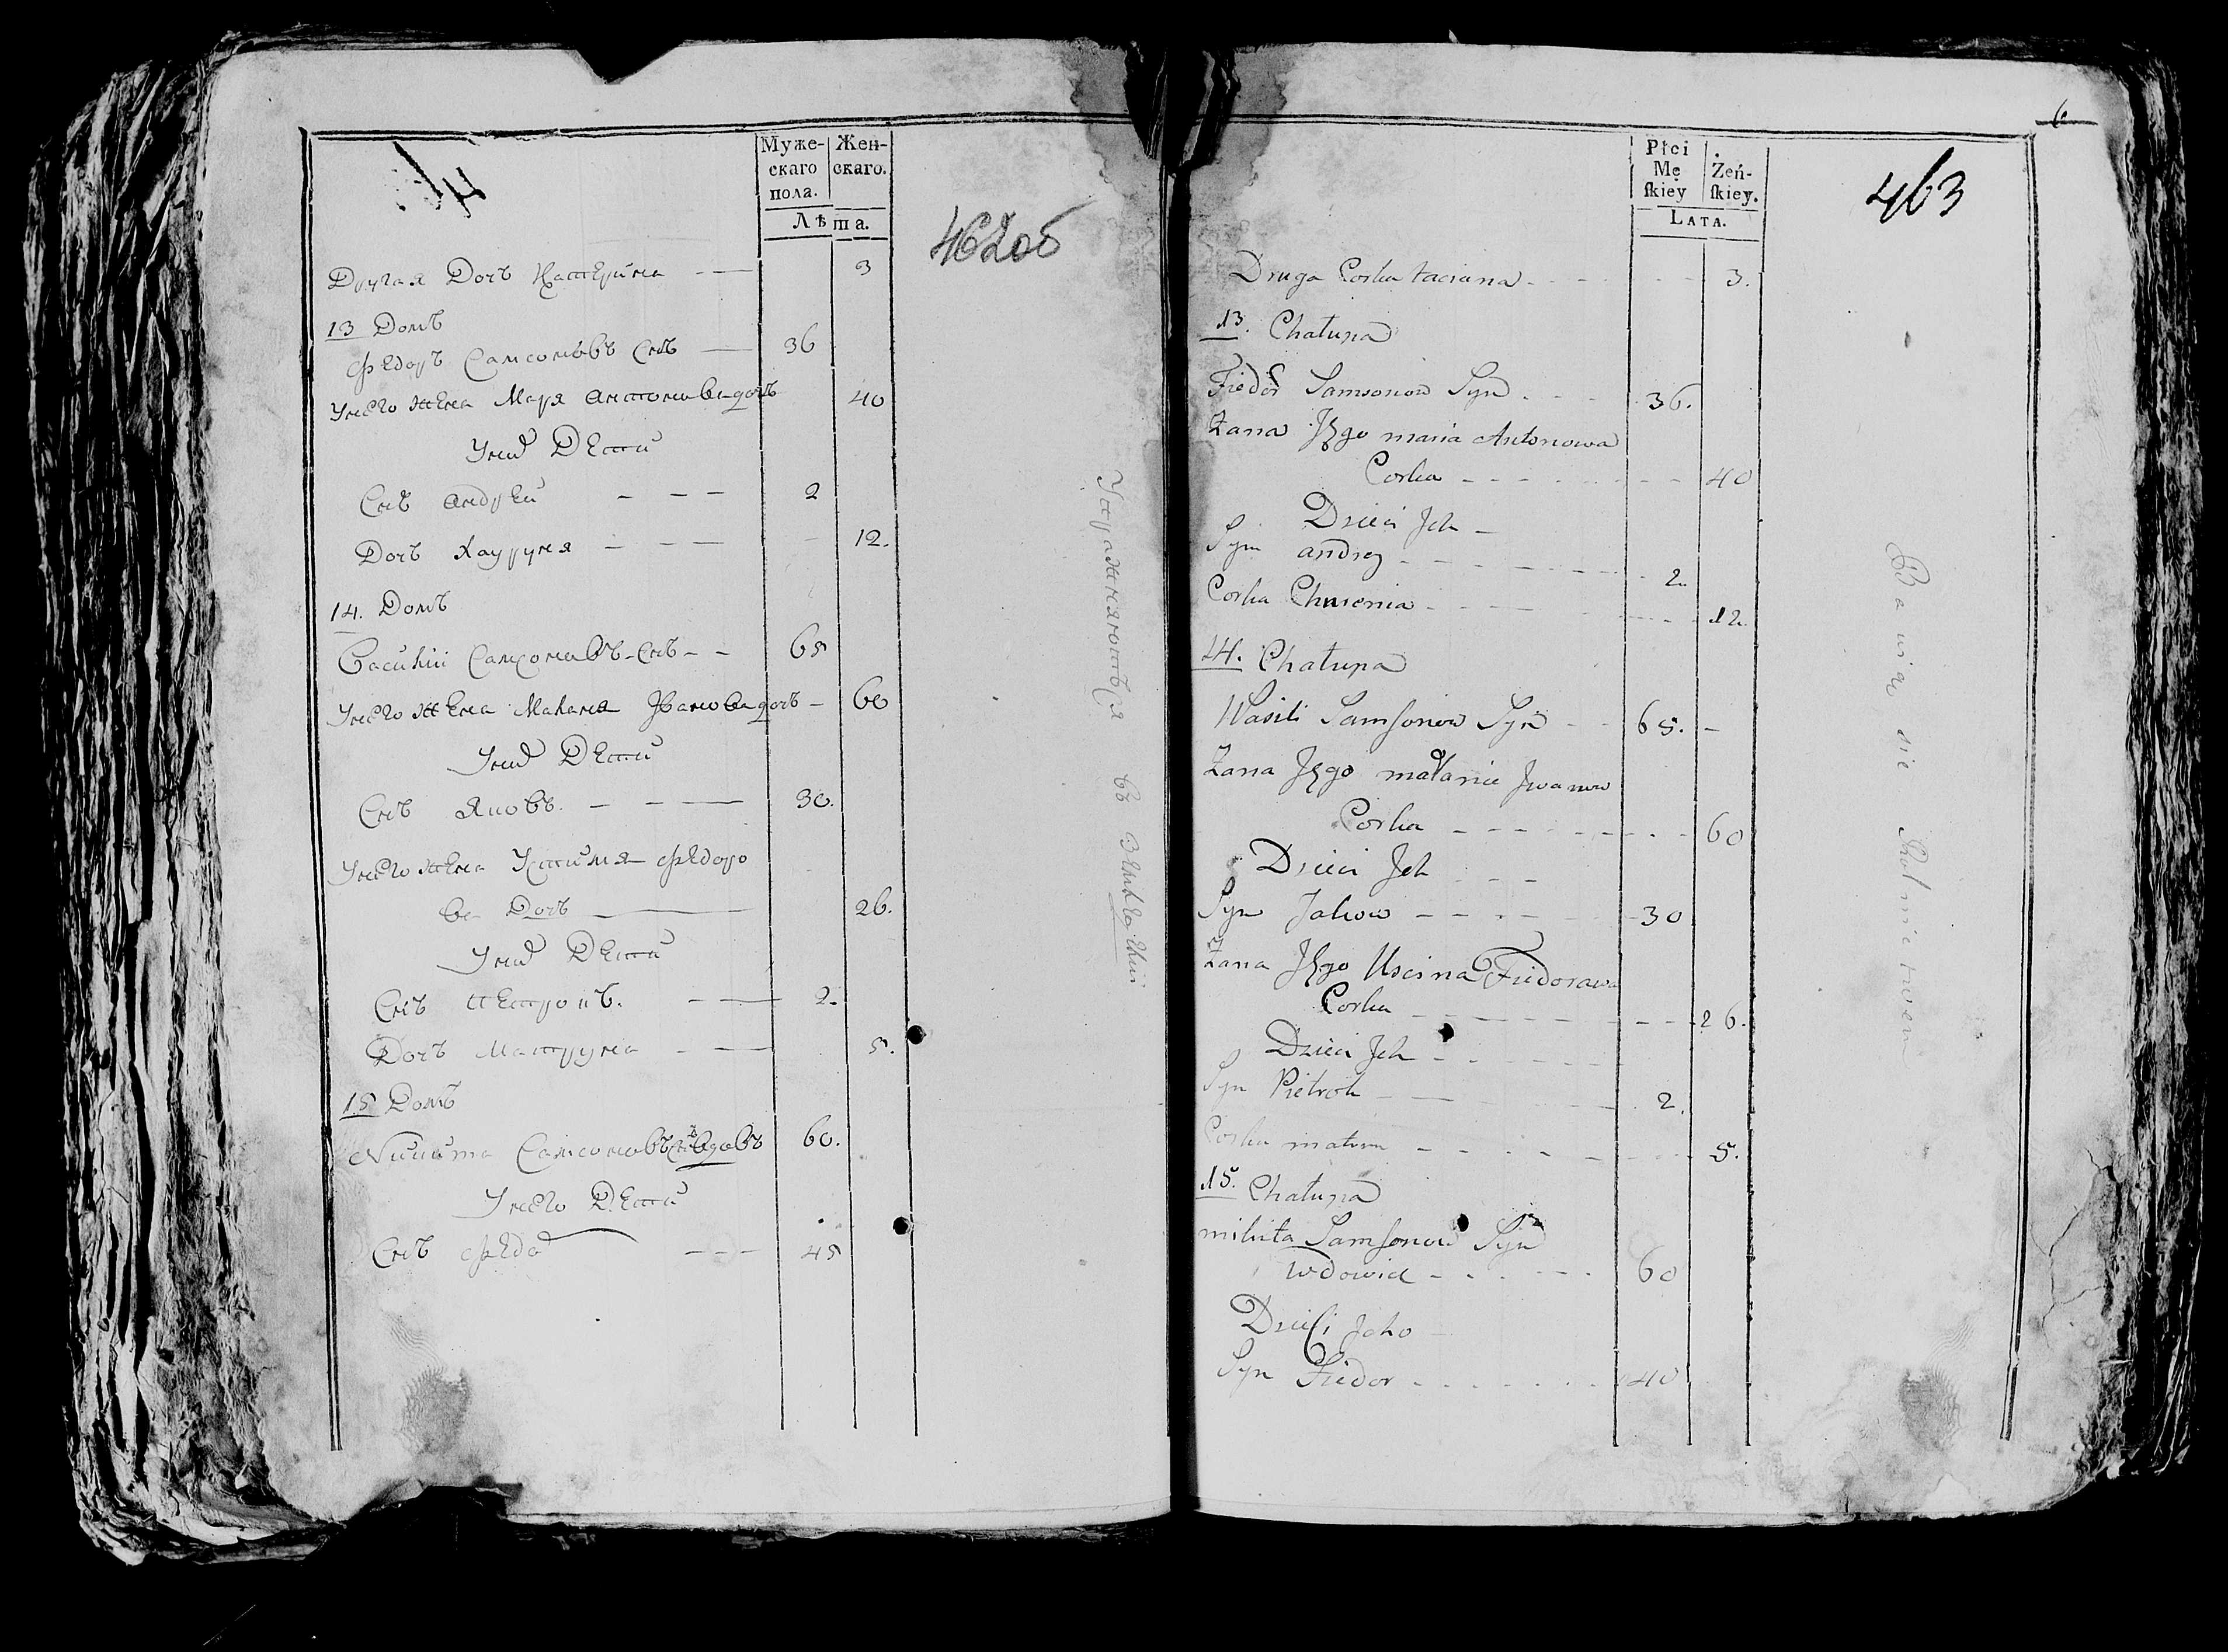 Муже-
скаго
пола.
Жен-
скаго.
Лѣта.
462об
Другая Дочъ Катерина — 3
13 Домъ
Федоръ Самсоновъ Снъ — 36
Унего Жена Маря Антонова дочъ 40
Уних Дети
Снъ Андрей — — — 2
Дочъ Хауруня — — — 12.
14. Домъ
Василий Самсоновъ Снъ — — 65
Унего Жена Маланя Иванова дочъ — 60
Уних Дети
Снъ Яковъ. — — — 30.
Унего Жена Устиня Федоро
ва Дочъ — 26.
Уних Дети
Снъ Петрокъ. — — 2.
Дочъ Матруна — — 5.
15 Домъ
Никита Самсоновъ Снъ Вдовъ 60.
Унего Дети
Снъ Федо — — — 45
Упражняются въ Земледелии
6
Płci
Mę
ſkiey
Żeń-
ſkiey.
LATA.
463
Druga Corka taciana - - - 3.
13. Chałupa
Fiedor Samsonow Syn - - - 36.
Zana Jego maria Antonowa
Corka - - - 40
Dzieci Jch -
Syn andrey - - - 2.
Corka Chwienia - - - 12.
14. Chałupa
Wasili Samſonow Syn - - 65. -
Zana Jego małania Jwanow
Corka - - - 60
Dzieci Jch - - -
Syn Jakow - - - 30
Zana Jego Uscina Fiedorawa
Corka - - - 26.
Dzieci Jch - - -
Syn Pietrok - - - 2.
Corka matruna - - - 5.
15. Chałupa
mikita Samſonow Syn
Wdowiec - - - 60
Dzieci Jeho
Syn Fiedor - - - 40
Bawią się Rolnictwem